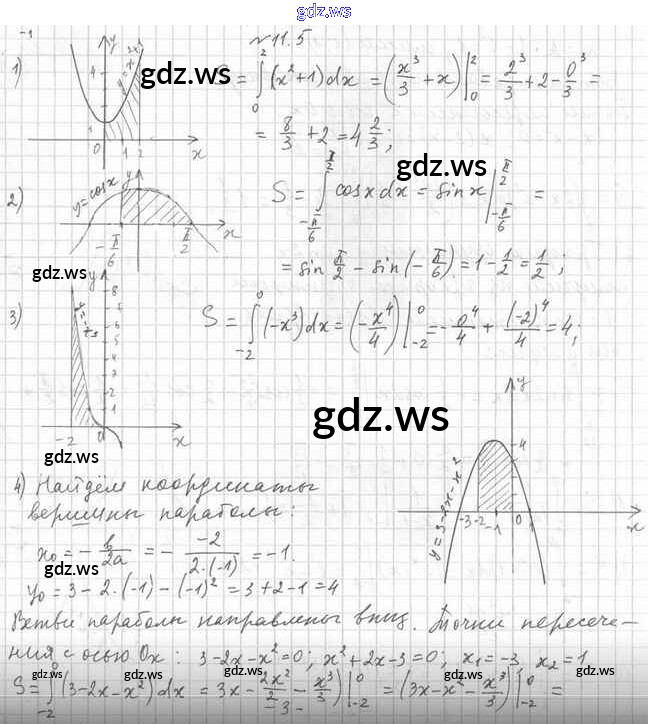 gdz.ws
№11.5
1) S = ∫₀² (x²+1)dx = (x³/3 + x)|₀² = 2³/3 + 2 - 0³/3 =
= 8/3 + 2 = 4 2/3;
gdz.ws
gdz.ws
2) y=cosx S = ∫_{-π/6}^{π/2} cosx dx = sinx |_{-π/6}^{π/2} =
= sin π/2 - sin(-π/6) = 1 - 1/2 = 1/2;
gdz.ws
3) S = ∫₋₂⁰ (-x³)dx = (-x⁴/4)|₋₂⁰ = -0⁴/4 + (-2)⁴/4 = 4;
gdz.ws
gdz.ws
4) Найдём координаты
вершины параболы:
y=3-2x-x²
x₀ = -b/2a = - -2/2·(-1) = -1.
gdz.ws
y₀ = 3-2·(-1)-(-1)² = 3+2-1 = 4
Ветви параболы направлены вниз. Точки пересече-
ния с осью Ox: 3-2x-x²=0; x²+2x-3=0; x₁=-3, x₂=1
S = ∫₋₂⁰ (3-2x-x²)dx = 3x - 2x²/2 - x³/3 |₋₂⁰ = (3x-x²-x³/3)|₋₂⁰ =
gdz.ws gdz.ws gdz.ws gdz.ws